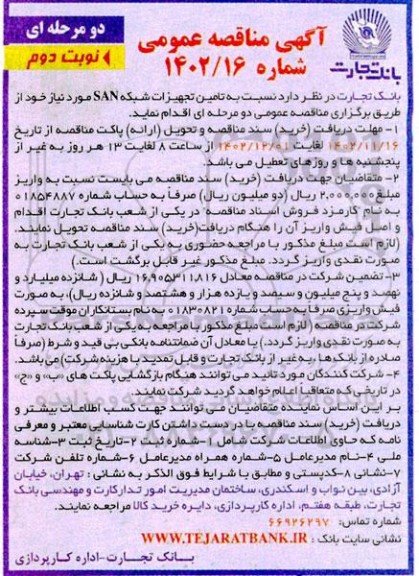 دو مرحله ای
نوبت دوم
آگهی مناقصه عمومی
شماره ۱۴۰۲/۱۶
بانک تجارت
بانک تجارت در نظر دارد نسبت به تامین تجهیزات شبکه SAN مورد نیاز خود از
طریق برگزاری مناقصه عمومی دو مرحله ای اقدام نماید.
۱- مهلت دریافت (خرید) سند مناقصه و تحویل (ارائه) پاکت مناقصه از تاریخ
۱۴۰۲/۱۱/۱۶ لغایت ۱۴۰۲/۱۲/۰۱ از ساعت ۸ لغایت ۱۳ هر روز به غیر از
پنجشنبه ها و روزهای تعطیل می باشد.
۲- متقاضیان جهت دریافت (خرید) سند مناقصه می بایست نسبت به واریز
مبلغ ۲,۰۰۰,۰۰۰ ریال (دو میلیون ریال) صرفاً به حساب شماره ۰۱۸۵۴۸۸۷
به نام کارمزد فروش اسناد مناقصه در یکی از شعب بانک تجارت اقدام
و اصل فیش واریز آن را هنگام دریافت(خرید) سند مناقصه تحویل نمایند.
(لازم است مبلغ مذکور با مراجعه حضوری به یکی از شعب بانک تجارت به
صورت نقدی واریز گردد. مبلغ مذکور غیر قابل برگشت است.)
۳- تضمین شرکت در مناقصه معادل ۱۶,۹۰۵۳۱۱,۸۱۶ ریال (شانزده میلیارد و
نهصد و پنج میلیون و سیصد و یازده هزار و هشتصد و شانزده ریال)، به صورت
فیش واریزی صرفاً به حساب شماره ۰۱۸۳۰۸۲۱ به نام بستانکاران موقت سپرده
شرکت در مناقصه (لازم است مبلغ مذکور با مراجعه به یکی از شعب بانک تجارت
به صورت نقدی واریز گردد.) یا معادل آن ضمانتنامه بانکی بی قید و شرط (صرفاً
صادره از بانک ها، به غیر از بانک تجارت و قابل تمدید با هزینه شرکت) می باشد.
۴- شرکت کنندگان مورد تائید می توانند هنگام بازگشایی پاکت های «ب» و «ج»
در تاریخی که متعاقباً اعلام خواهد گردید شرکت نمایند.
بر این اساس نماینده متقاضیان می توانند جهت کسب اطلاعات بیشتر و
دریافت (خرید) سند مناقصه با در دست داشتن کارت شناسایی معتبر و معرفی
نامه که حاوی اطلاعات شرکت شامل ۱-شماره ثبت ۲-تاریخ ثبت ۳-شناسه
ملی ۴-نام مدیرعامل ۵-شماره همراه مدیرعامل ۶-شماره تلفن شرکت
۷-نشانی ۸-کدپستی و مطابق با شرایط فوق الذکر به نشانی : تهران، خیابان
آزادی، بین نواب و اسکندری، ساختمان مدیریت امور تدارکات و مهندسی بانک
تجارت، طبقه هفتم، اداره کارپردازی، دایره خرید کالا مراجعه نمایند.
شماره تماس: ۶۶۹۲۶۲۹۷
نشانی سایت بانک : WWW.TEJARATBANK.IR
بانک تجارت-اداره کارپردازی